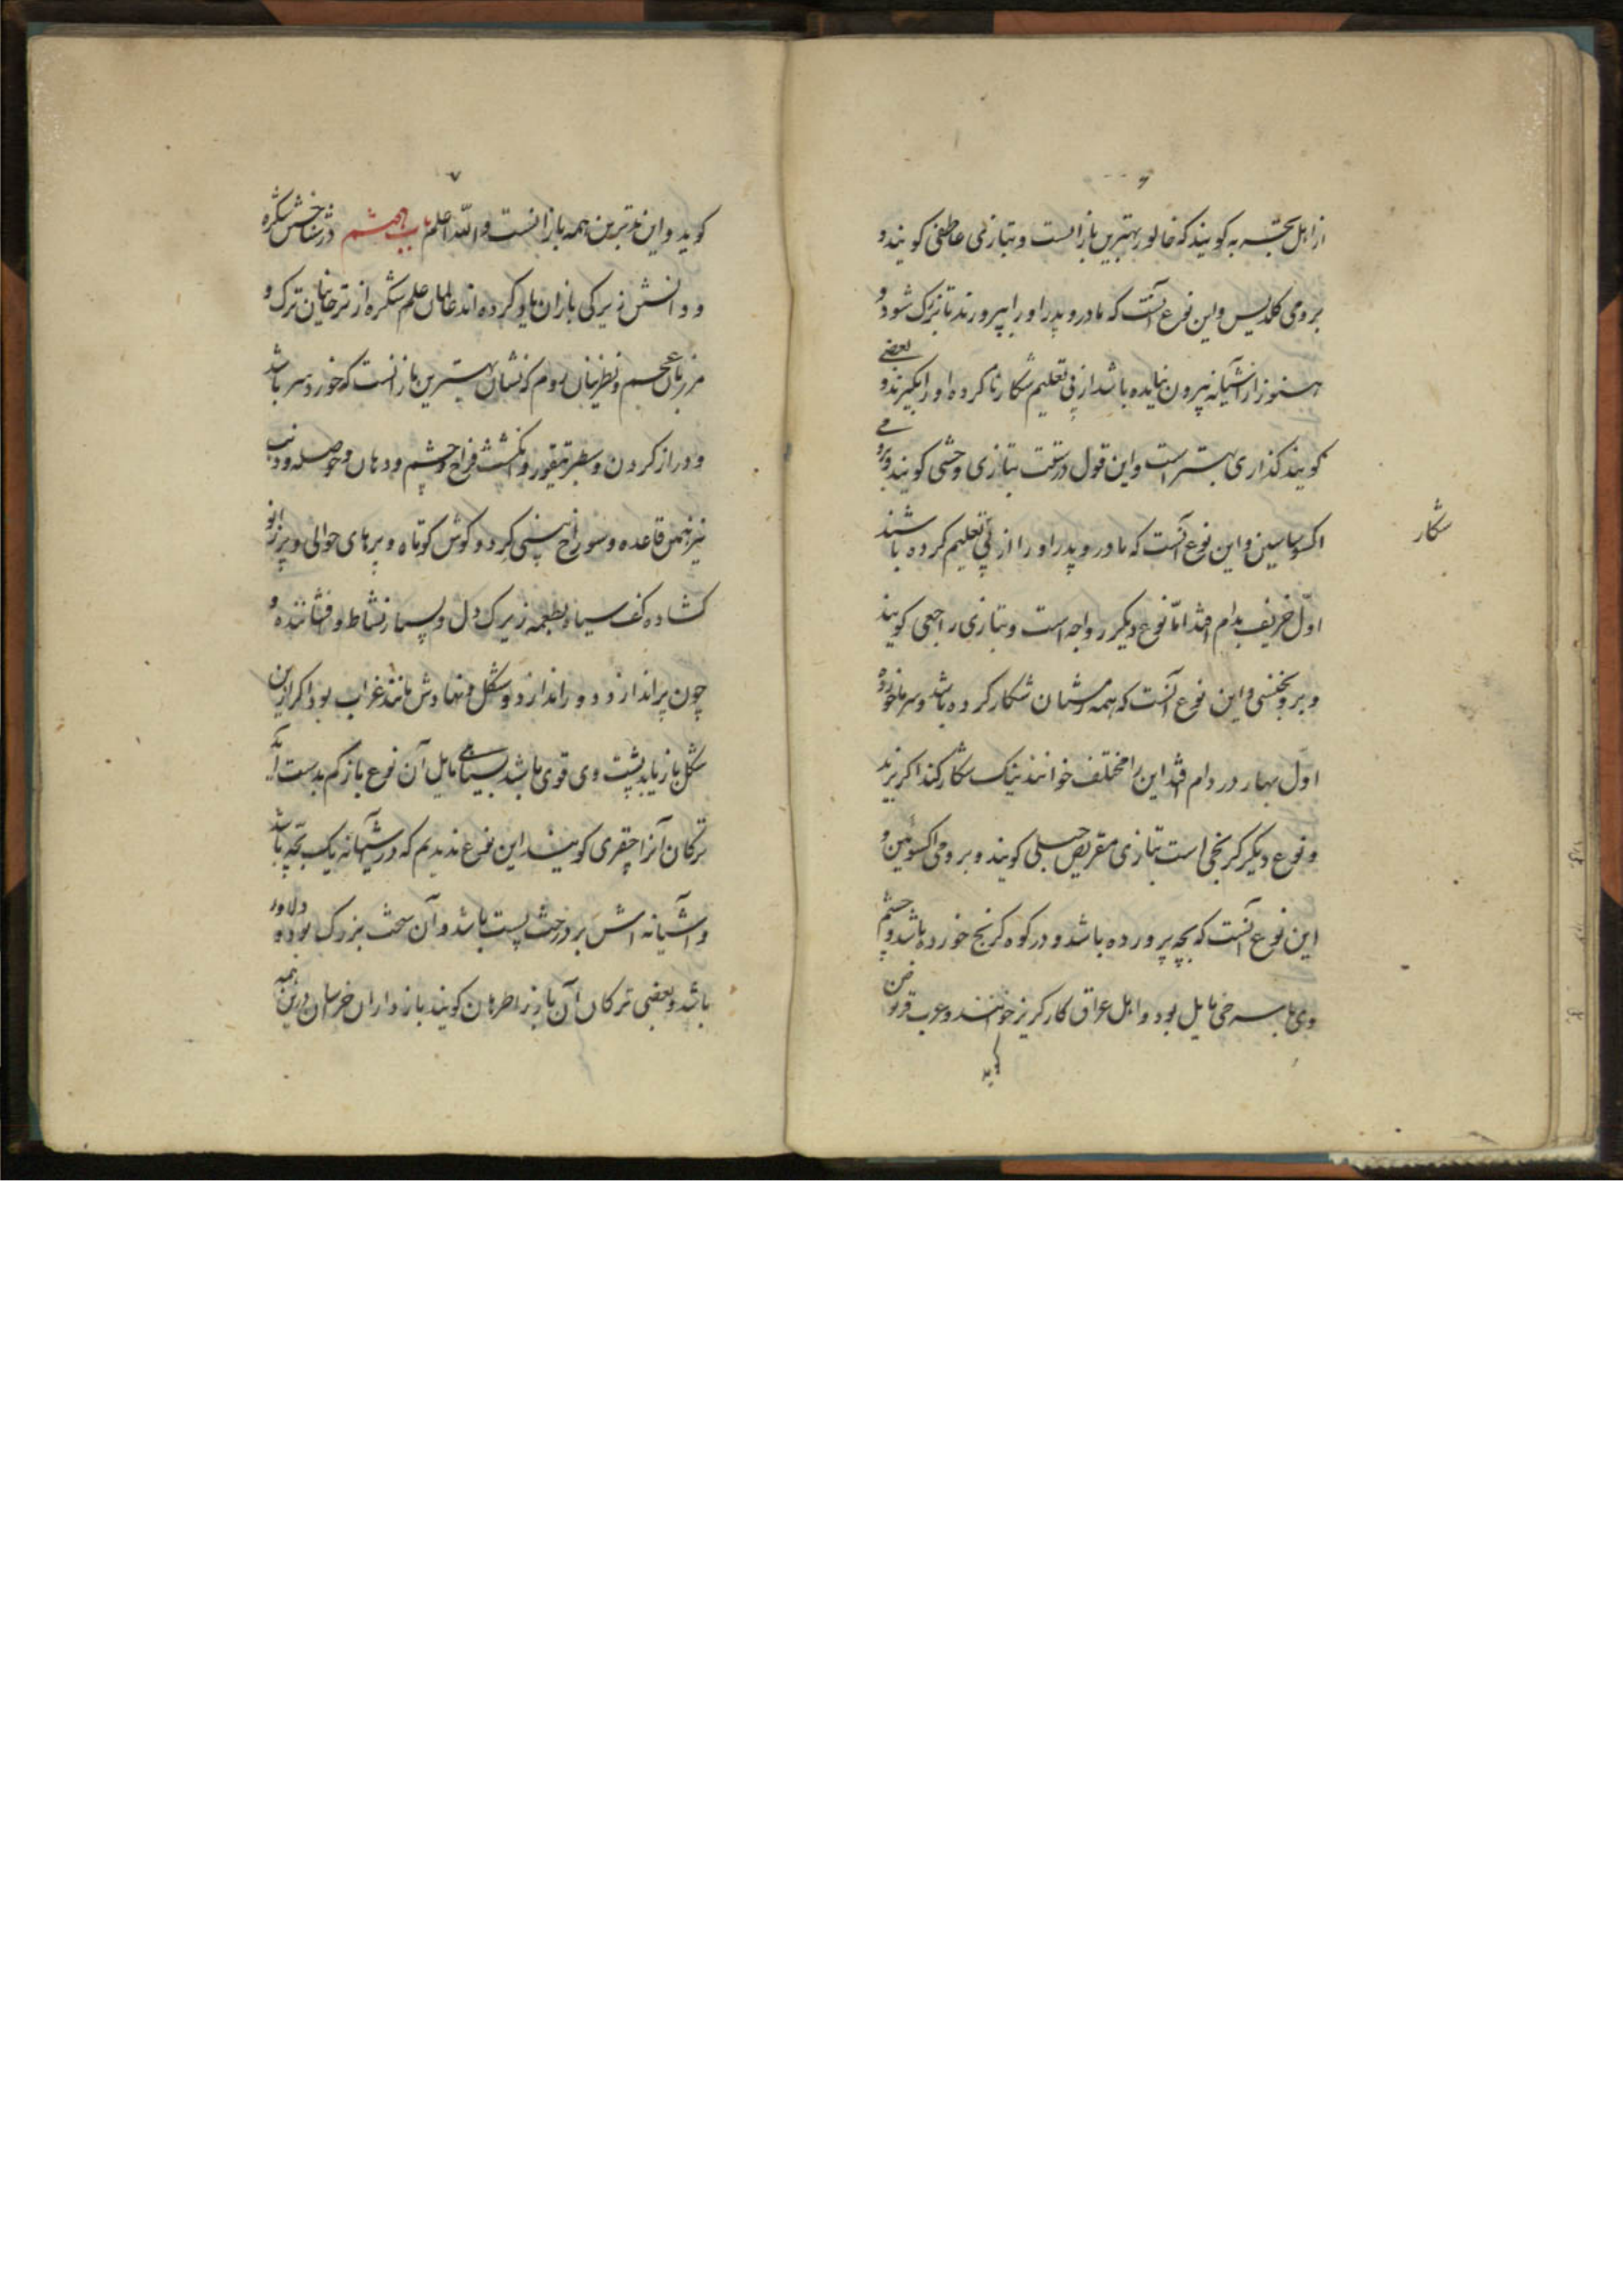 ۶
از اهل تجربه کویند که خالور بهترین بازانست و بتازی عاطفی کویند و
برومی کلدیس و این نوع آنست که مادر و پدر او را بپرورند تا بزرک شود و
هنوز از آشیانه بیرون نیامده باشد از پی تعلیم شکار ناکرده او را بکیرند و بعضی
کویند کذاری بهتر است و این قول درست بتازی وحشی کویند و برومی
اکسوساسین و این نوع آنست که مادر و پدر او را از پی تعلیم کرده باشند
شکار
اوّل خریف بدام افتد امّا نوع دیکر رواجه است و بتازی راجعی کویند
و برو بخنسی و این نوع آنست که همه زمستان شکار کرده باشد و سرما خورده
اوّل بهار در دام افتد این را مختلف خوانند نیک شکار کند اکر بریزند
و نوع دیکر کریجی است بتازی مقریص جبلی کویند و برومی اکسوئین و
این نوع آنست که بچه پرورده باشد و در کوه کریج خورده باشد و چشم
وی با سرخی مایل بود و اهل عراق کار کریز خوانند و عرب قرنص
کوید
۷
کوید و این بدترین همه بازانست و اللّه اعلم باب هشتم در شناختن شکره
و دانش زیرکی بازان یاد کرده اند عالمان علم شکره از ترخانیان ترک و
مرزبان عجم و نظرنیان روم که نشان بهترین باز آنست که خورد سر باشد
و دراز کردن و سطبر تیغور و انکشت فراخ و چشم و دهان و حوصله و ذنب
نیز بهمین قاعده و سوراخ بینی کرد و کوش کوتاه و پرهای حوالی و پر زانو
کشاده کف سیاه و بطعمه زیرک دل و بسیار نشاط و فشاننده و
چون پر اندازد دور اندازد و شکل و نهادش مانند غراب بود اکر ازین
شکل باز یابد پشت وی قوی باشد بسیاهی مایل آن نوع باز کم بدست آید
ترکان آنرا چقری کویند این نوع ندیدیم که در آشیانه یک بچّه باشد
و آشیانه اش بر درخت پست باشد و آن سخت بزرک بود و دلاور
باشد و بعضی ترکان آن باز را طرهان کویند بازداران خراسان درین همه